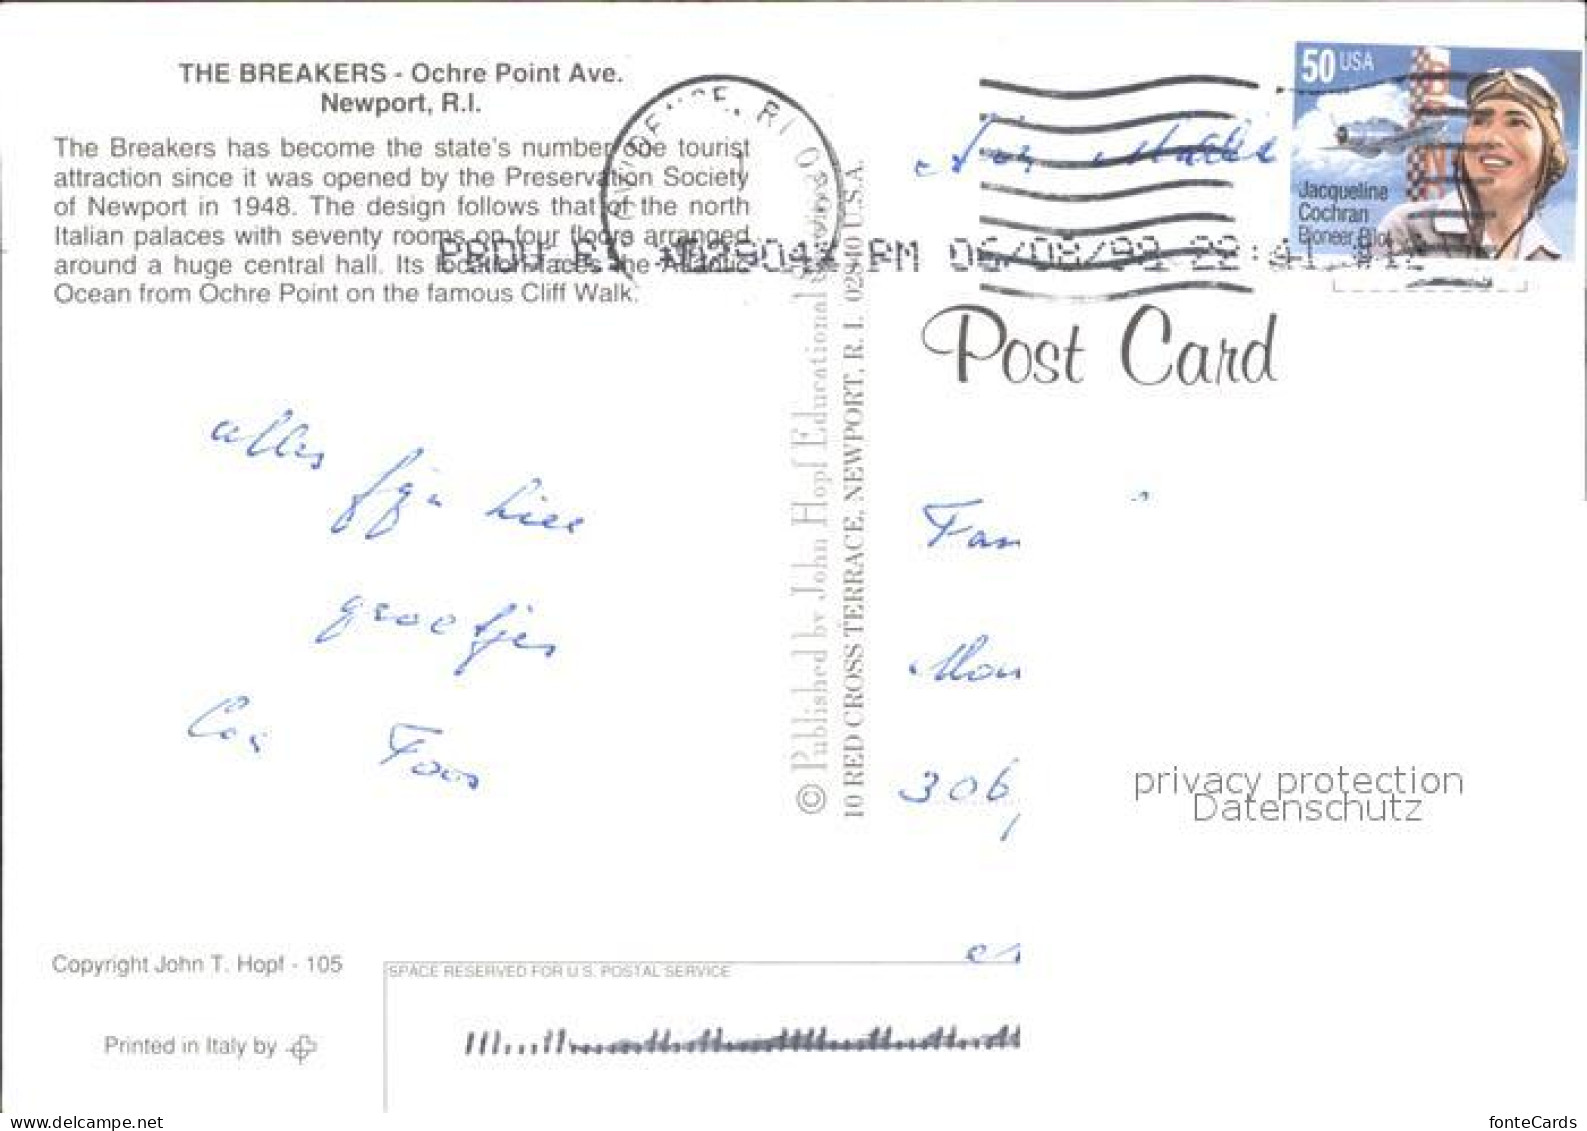 THE BREAKERS - Ochre Point Ave.
Newport, R.I.
The Breakers has become the state's number one tourist
attraction since it was opened by the Preservation Society
of Newport in 1948. The design follows that of the north
Italian palaces with seventy rooms on four floors arranged
around a huge central hall. Its location faces the Atlantic
Ocean from Ochre Point on the famous Cliff Walk.
alles
fijn hier
groetjes
Copyright John T. Hopf - 105
Printed in Italy by
© Published by John Hopf Educational
10 RED CROSS TERRACE, NEWPORT, R. I. 02840 U.S.A.
PM 06/08/99 22:41 #12
50 USA
Jacqueline
Cochran
Pioneer Pilot
Post Card
Fam
306
privacy protection
Datenschutz
SPACE RESERVED FOR U.S. POSTAL SERVICE
www.delcampe.net
fonteCards